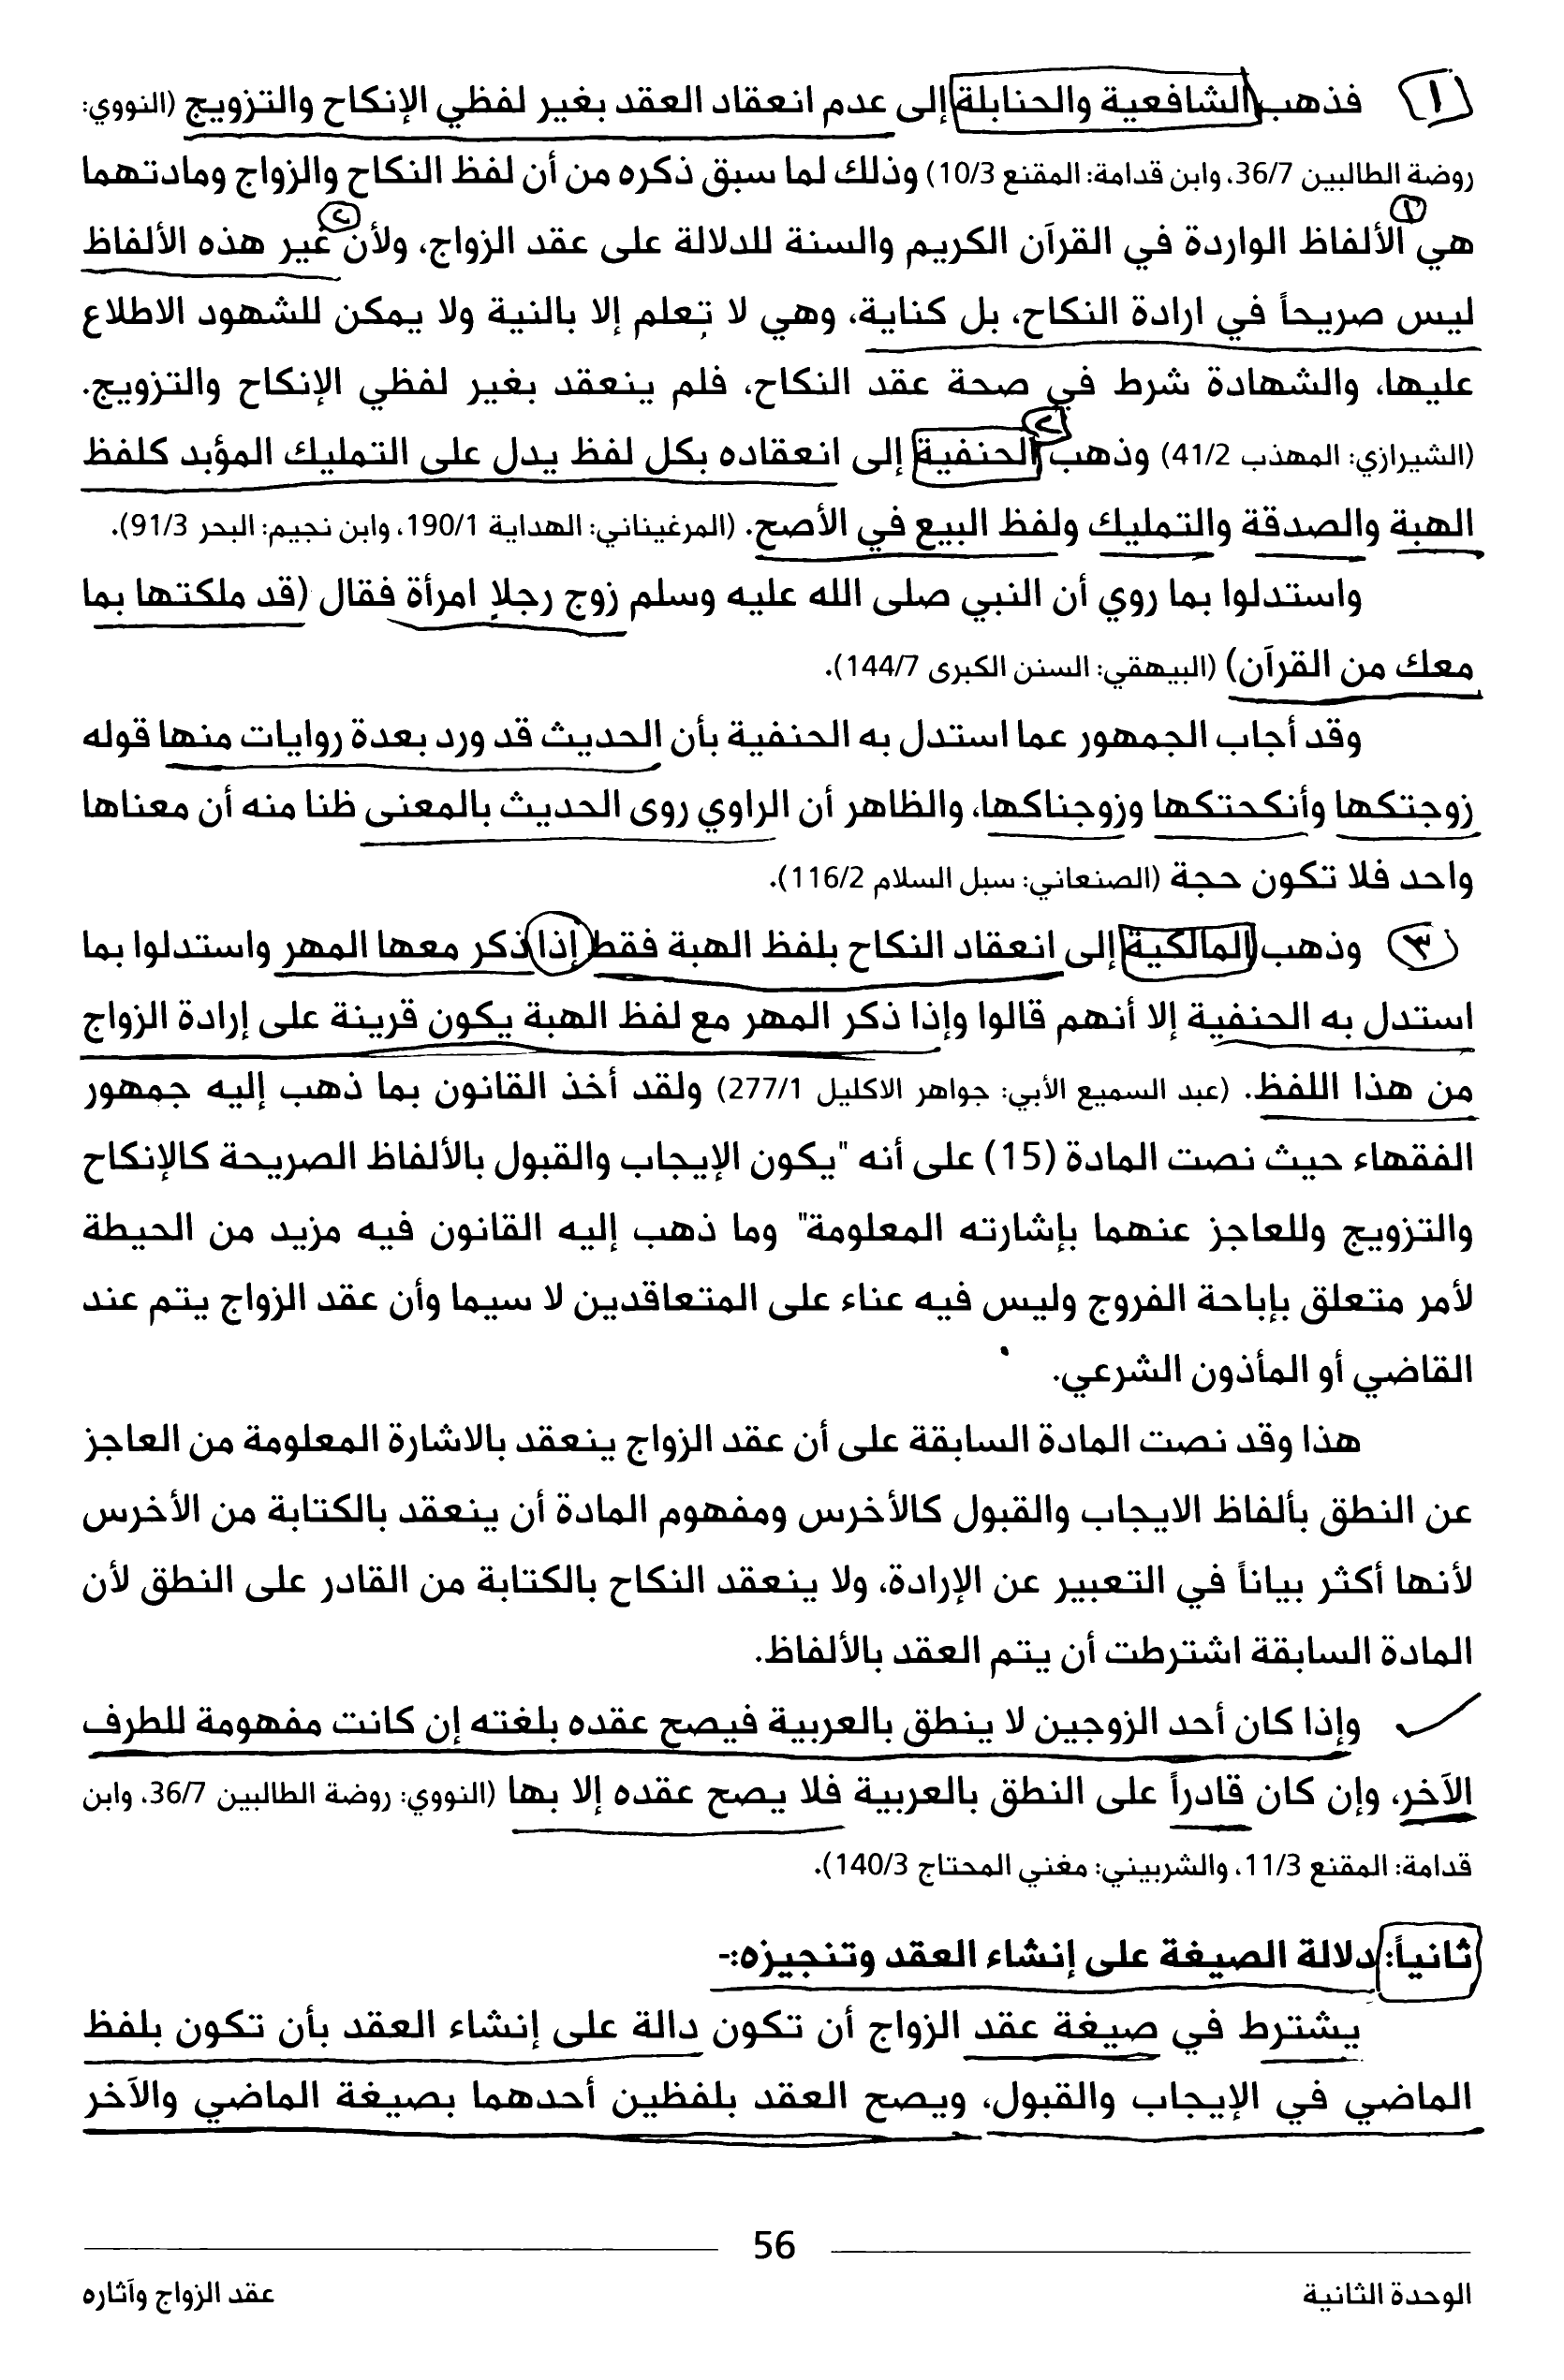 ١ فذهب الشافعية والحنابلة إلى عدم انعقاد العقد بغير لفظي الإنكاح والتزويج (النووي:
روضة الطالبين 36/7، وابن قدامة: المقنع 10/3) وذلك لما سبق ذكره من أن لفظ النكاح والزواج ومادتهما
١ ٢
هي الألفاظ الواردة في القرآن الكريم والسنة للدلالة على عقد الزواج، ولأن غير هذه الألفاظ
ليس صريحاً في ارادة النكاح، بل كناية، وهي لا تعلم إلا بالنية ولا يمكن للشهود الاطلاع
عليها، والشهادة شرط في صحة عقد النكاح، فلم ينعقد بغير لفظي الإنكاح والتزويج.
٢
(الشيرازي: المهذب 41/2) وذهب الحنفية إلى انعقاده بكل لفظ يدل على التمليك المؤبد كلفظ
الهبة والصدقة والتمليك ولفظ البيع في الأصح. (المرغيناني: الهداية 190/1، وابن نجيم: البحر 91/3).
واستدلوا بما روي أن النبي صلى الله عليه وسلم زوج رجلاً امرأة فقال (قد ملكتها بما
معك من القرآن) (البيهقي: السنن الكبرى 144/7).
وقد أجاب الجمهور عما استدل به الحنفية بأن الحديث قد ورد بعدة روايات منها قوله
زوجتكها وأنكحتكها وزوجناكها، والظاهر أن الراوي روى الحديث بالمعنى ظنا منه أن معناها
واحد فلا تكون حجة (الصنعاني: سبل السلام 116/2).
٣ وذهب المالكية إلى انعقاد النكاح بلفظ الهبة فقط إذا ذكر معها المهر واستدلوا بما
استدل به الحنفية إلا أنهم قالوا وإذا ذكر المهر مع لفظ الهبة يكون قرينة على إرادة الزواج
من هذا اللفظ. (عبد السميع الأبي: جواهر الاكليل 277/1) ولقد أخذ القانون بما ذهب إليه جمهور
الفقهاء حيث نصت المادة (15) على أنه "يكون الإيجاب والقبول بالألفاظ الصريحة كالإنكاح
والتزويج وللعاجز عنهما بإشارته المعلومة" وما ذهب إليه القانون فيه مزيد من الحيطة
لأمر متعلق بإباحة الفروج وليس فيه عناء على المتعاقدين لا سيما وأن عقد الزواج يتم عند
القاضي أو المأذون الشرعي.
هذا وقد نصت المادة السابقة على أن عقد الزواج ينعقد بالاشارة المعلومة من العاجز
عن النطق بألفاظ الايجاب والقبول كالأخرس ومفهوم المادة أن ينعقد بالكتابة من الأخرس
لأنها أكثر بياناً في التعبير عن الإرادة، ولا ينعقد النكاح بالكتابة من القادر على النطق لأن
المادة السابقة اشترطت أن يتم العقد بالألفاظ.
وإذا كان أحد الزوجين لا ينطق بالعربية فيصح عقده بلغته إن كانت مفهومة للطرف
الآخر، وإن كان قادراً على النطق بالعربية فلا يصح عقده إلا بها (النووي: روضة الطالبين 36/7، وابن
قدامة: المقنع 11/3، والشربيني: مغني المحتاج 140/3).
ثانياً: دلالة الصيغة على إنشاء العقد وتنجيزه:-
يشترط في صيغة عقد الزواج أن تكون دالة على إنشاء العقد بأن تكون بلفظ
الماضي في الإيجاب والقبول، ويصح العقد بلفظين أحدهما بصيغة الماضي والآخر
56
الوحدة الثانية
عقد الزواج وآثاره